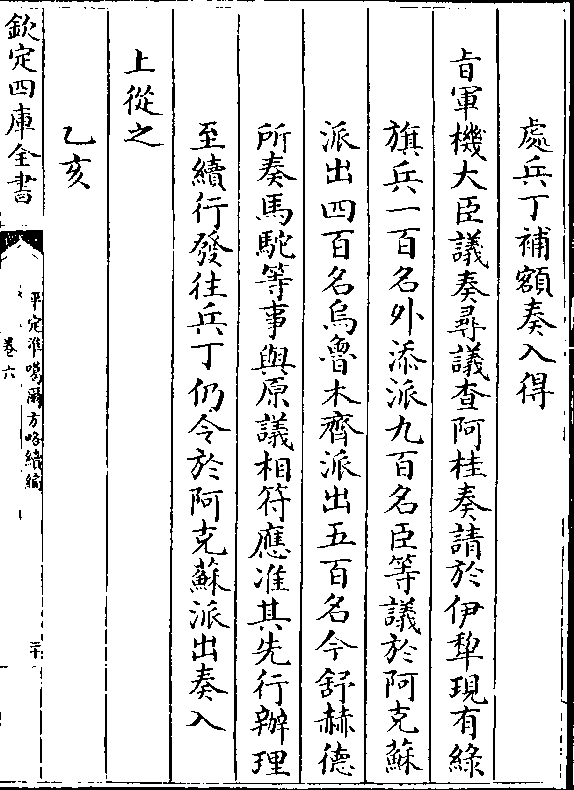 處兵丁補額奏入得
㫖軍機大臣議奏尋議查阿桂奏請於伊犂現有綠
旗兵一百名外添派九百名臣等議於阿克蘇
派出四百名烏魯木齊派出五百名今舒赫德
所奏馬駝等事與原議相符應准其先行辦理
至續行發往兵丁仍令於阿克蘇派出奏入
上從之
乙亥
欽定四庫全書
平定準噶爾方略續編
卷六